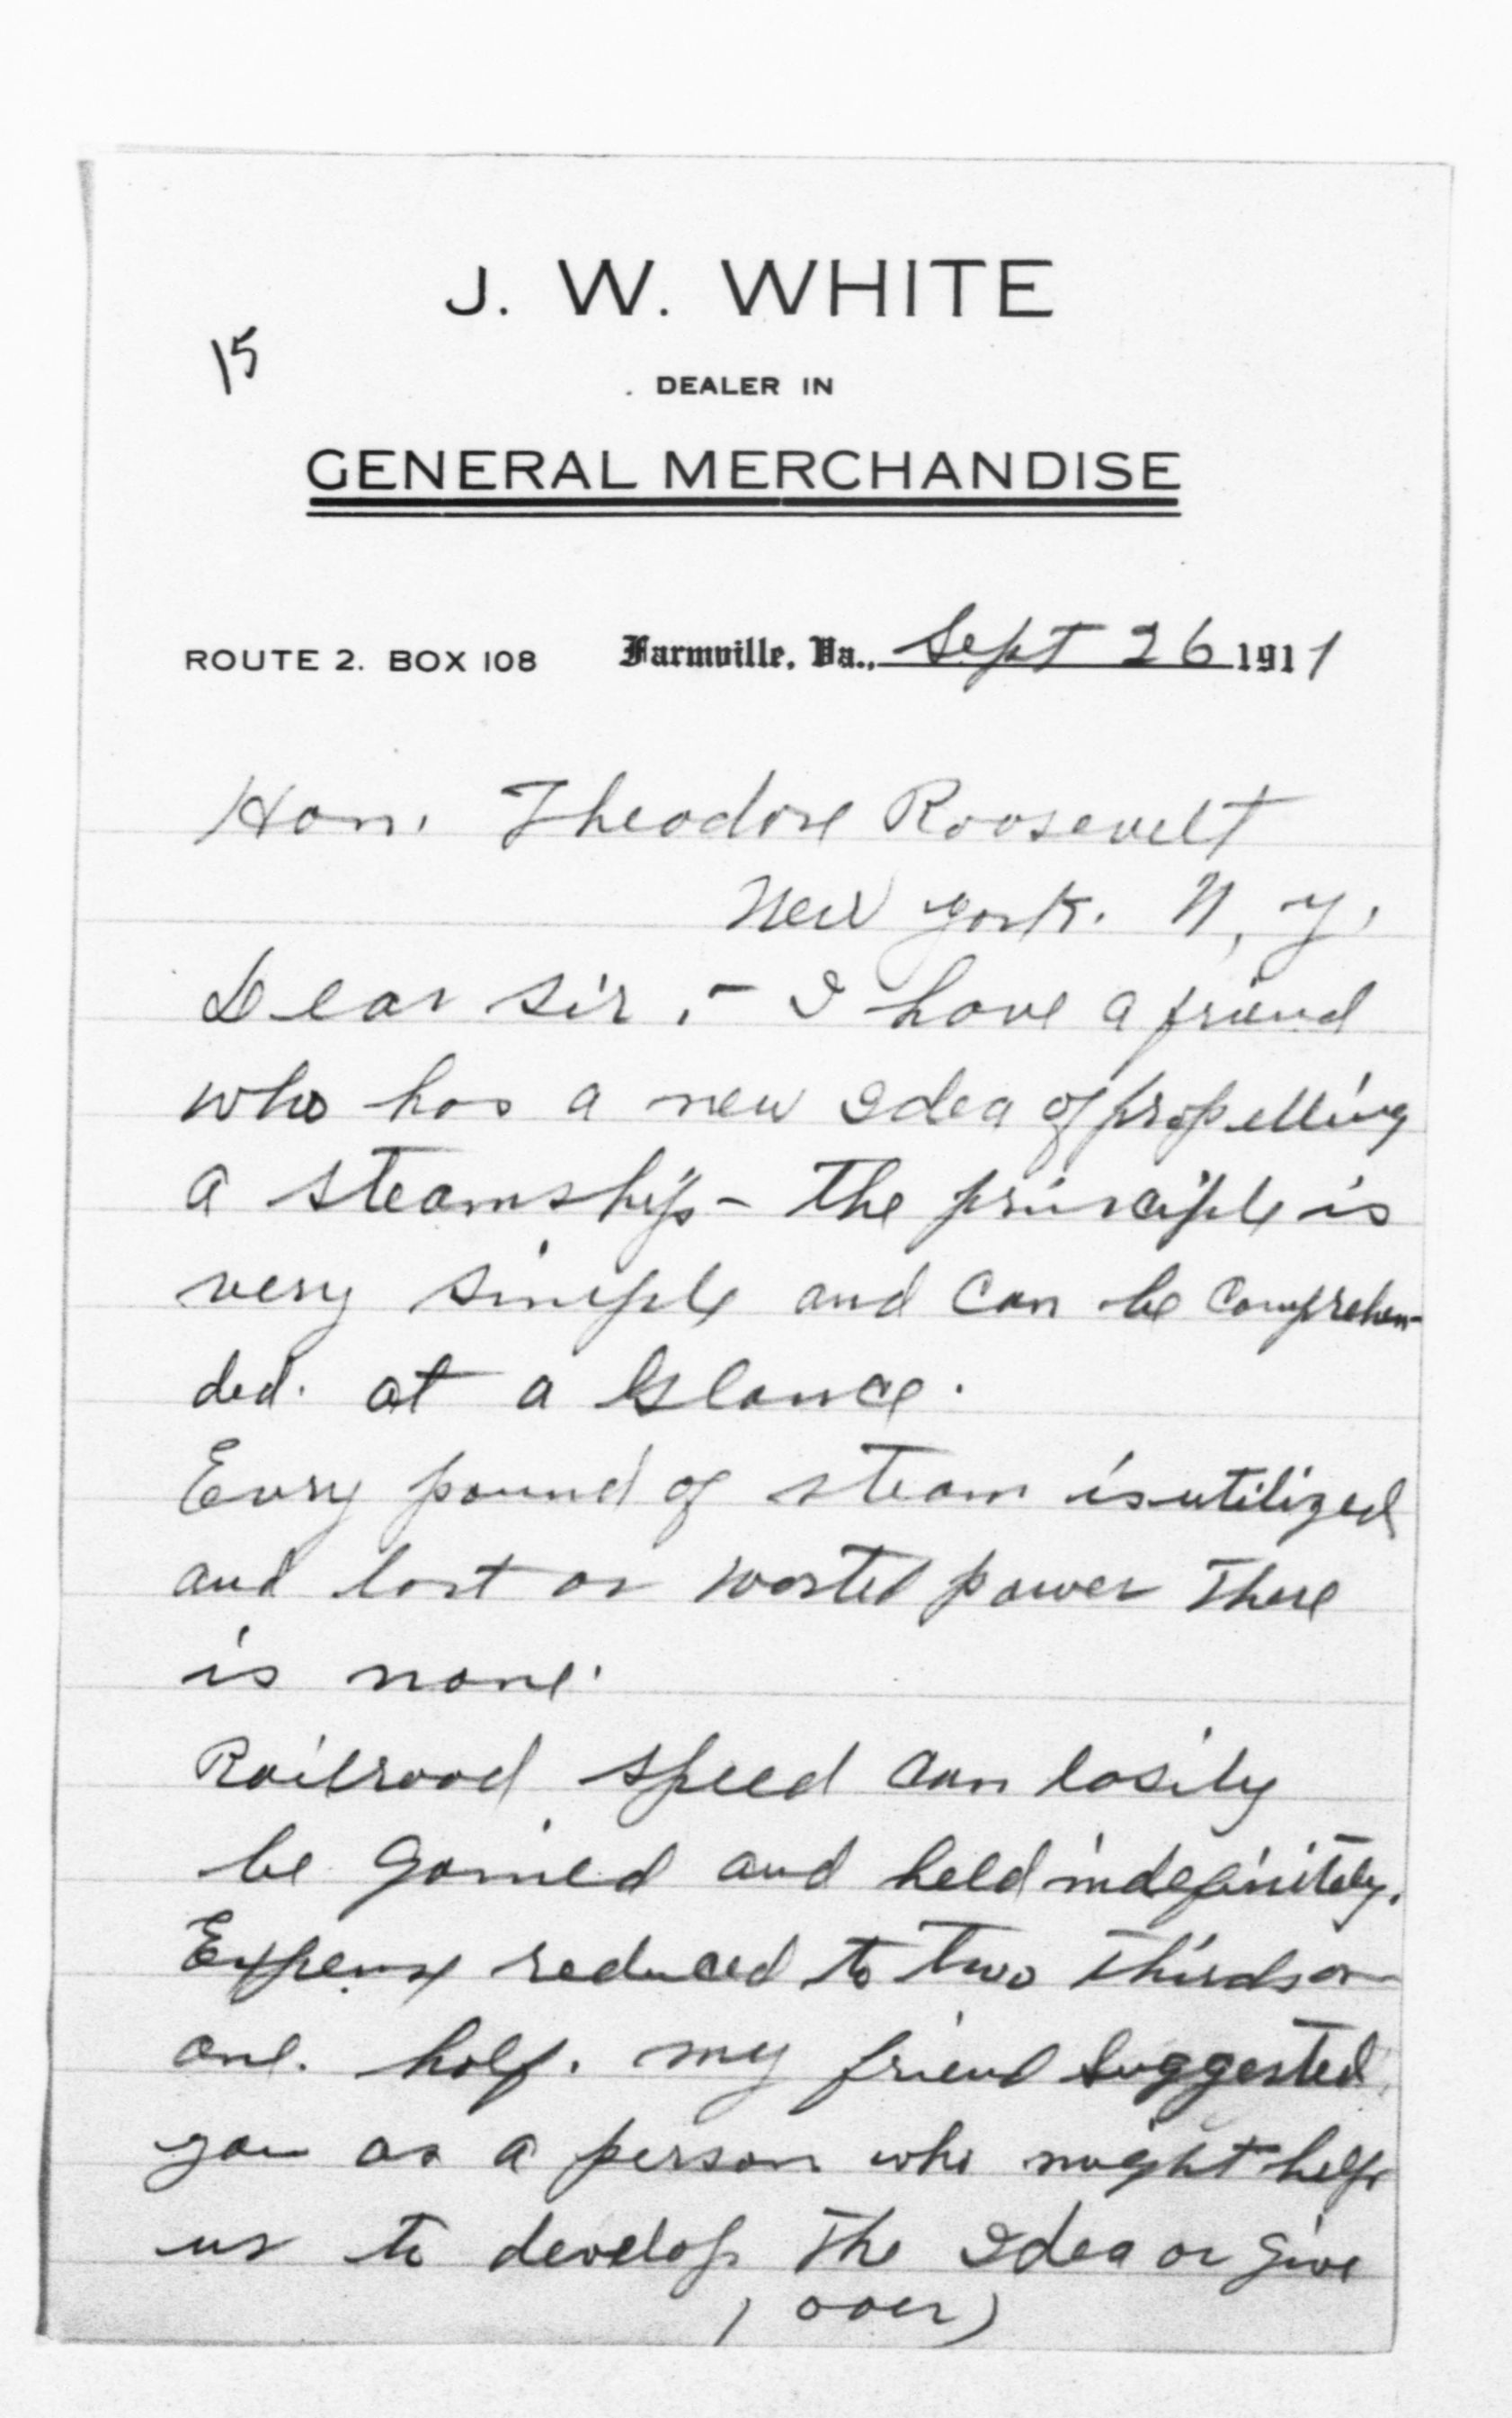 J. W. WHITE
15
DEALER IN
GENERAL MERCHANDISE
ROUTE 2. BOX 108 Farmville, Va., Sept 26 1911
Hon. Theodore Roosevelt
New York. N, Y,
Dear sir, - I have a friend
who has a new Idea of propelling
a steamship - The principle is
very simple and can be comprehen-
ded. at a Glance.
Every pound of steam is utilized
and lost or wasted power there
is none.
Railroad speed can easily
be gained and held indefinitely.
Expense reduced to two thirds or
one. half. my friend suggested
you as a person who might help
us to develop The Idea or give
(over)